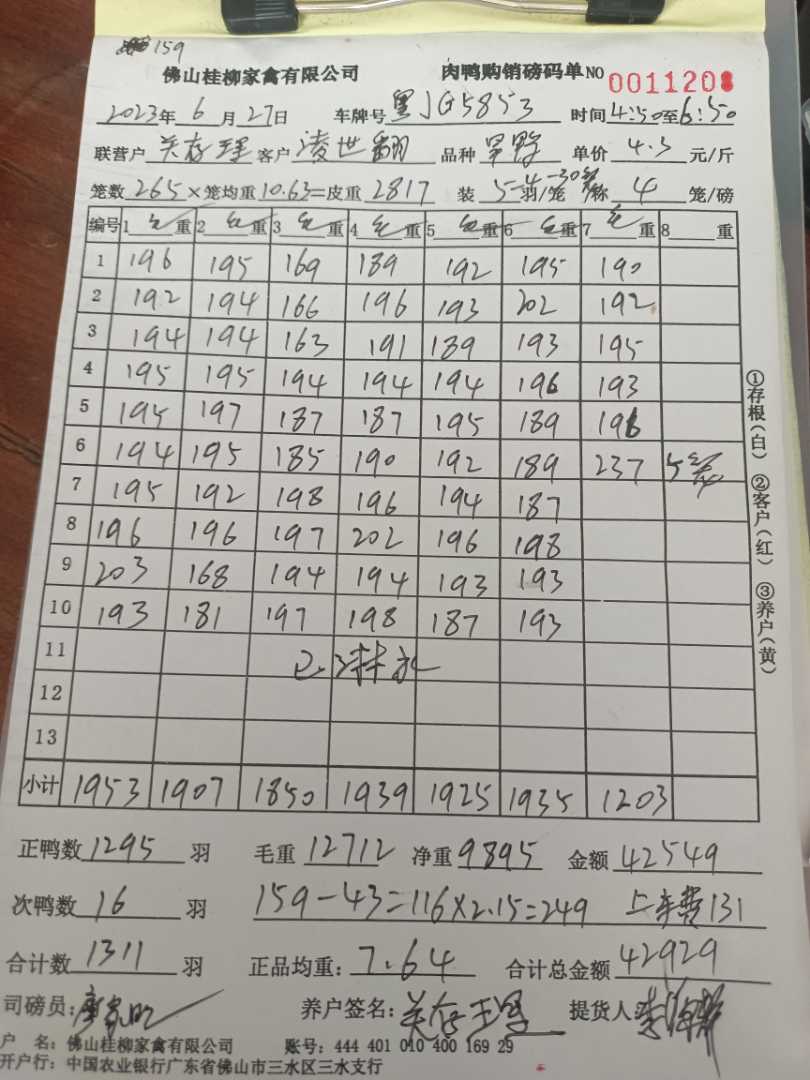 159
佛山桂柳家禽有限公司 肉鸭购销磅码单 NO 0011208
2023年 6 月 27日 车牌号 黑JG5853 时间 4:50至6:50
联营户 关存理 客户 凌世翻 品种 单价 4.3 元/斤
笼数 265 ×笼均重 10.63 =皮重 2817 装 5-4-30笼 羽/笼 称 4 笼/磅
编号 1 毛 重 2 毛 重 3 毛 重 4 毛 重 5 毛 重 6 毛 重 7 毛 重 8 重
1 196 195 169 189 192 195 190
2 192 194 166 196 193 202 192
3 194 194 163 191 189 193 195
4 195 195 194 194 194 196 193
5 195 197 187 187 195 189 196
6 194 195 185 190 192 189 237 5笼
7 195 192 198 196 194 187
8 196 196 197 202 196 198
9 203 168 194 194 193 193
10 193 181 197 198 187 193
11 已淋水
12
13
小计 1953 1907 1850 1939 1925 1935 1203
正鸭数 1295 羽 毛重 12712 净重 9895 金额 42549
次鸭数 16 羽 159-43=116×2.15=249 上车费131
合计数 1311 羽 正品均重: 7.64 合计总金额 42929
司磅员: 养户签名: 关存理 提货人
户 名: 佛山桂柳家禽有限公司 账号: 444 401 010 400 169 29
开户行: 中国农业银行广东省佛山市三水区三水支行
①存根(白) ②客户(红) ③养户(黄)